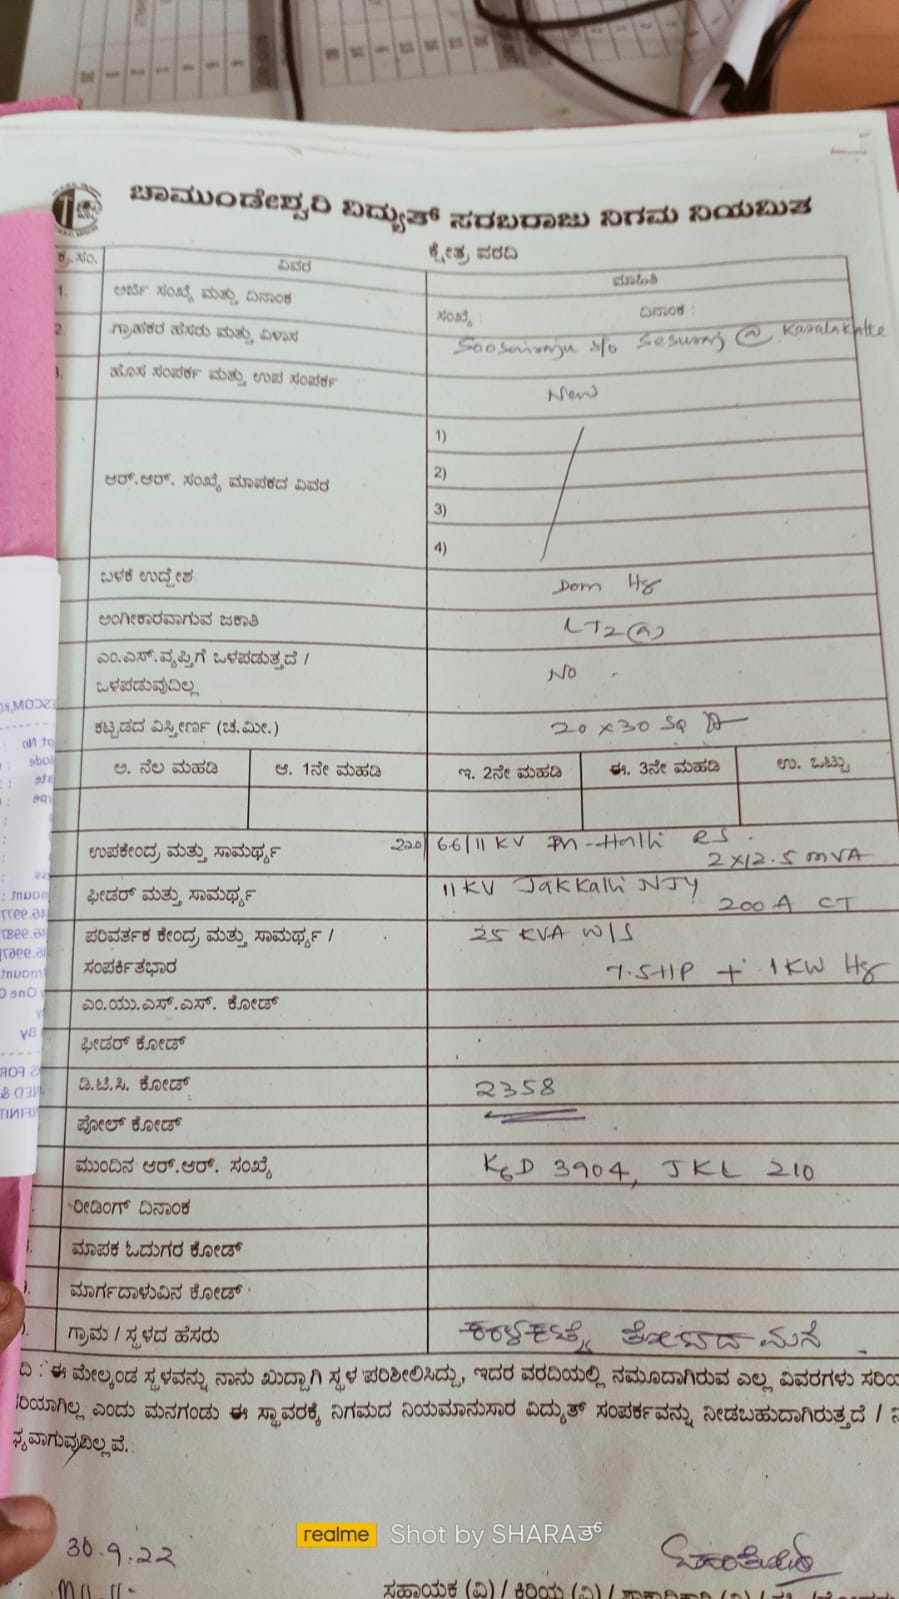 ಚಾಮುಂಡೇಶ್ವರಿ ವಿದ್ಯುತ್ ಸರಬರಾಜು ನಿಗಮ ನಿಯಮಿತ
ಕ್ಷೇತ್ರ ವರದಿ
ಕ್ರ.ಸಂ. ವಿವರ ಮಾಹಿತಿ
1. ಅರ್ಜಿ ಸಂಖ್ಯೆ ಮತ್ತು ದಿನಾಂಕ ಸಂಖ್ಯೆ : ದಿನಾಂಕ :
2. ಗ್ರಾಹಕರ ಹೆಸರು ಮತ್ತು ವಿಳಾಸ S/o Sesuraj @ Karalakatte
ಹೊಸ ಸಂಪರ್ಕ ಮತ್ತು ಉಪ ಸಂಪರ್ಕ New
ಆರ್.ಆರ್. ಸಂಖ್ಯೆ ಮಾಪಕದ ವಿವರ
1)
2)
3)
4)
ಬಳಕೆ ಉದ್ದೇಶ Dom Hg
ಅಂಗೀಕಾರವಾಗುವ ಜಕಾತಿ LT2(a)
ಎಂ.ಎಸ್.ವ್ಯಪ್ತಿಗೆ ಒಳಪಡುತ್ತದೆ /
ಒಳಪಡುವುದಿಲ್ಲ No
ಕಟ್ಟಡದ ವಿಸ್ತೀರ್ಣ (ಚ.ಮೀ.) 20 x 30 Sq ft
ಅ. ನೆಲ ಮಹಡಿ ಆ. 1ನೇ ಮಹಡಿ ಇ. 2ನೇ ಮಹಡಿ ಈ. 3ನೇ ಮಹಡಿ ಉ. ಒಟ್ಟು
ಉಪಕೇಂದ್ರ ಮತ್ತು ಸಾಮರ್ಥ್ಯ 220/66/11 KV Pn-Halli RS.
2x12.5 MVA
ಫೀಡರ್ ಮತ್ತು ಸಾಮರ್ಥ್ಯ 11 KV Jakkalli NJY
200 A CT
ಪರಿವರ್ತಕ ಕೇಂದ್ರ ಮತ್ತು ಸಾಮರ್ಥ್ಯ / 25 KVA W/S
ಸಂಪರ್ಕಿತಭಾರ 7.5 HP + 1 KW Hg
ಎಂ.ಯು.ಎಸ್.ಎಸ್. ಕೋಡ್
ಫೀಡರ್ ಕೋಡ್
ಡಿ.ಟಿ.ಸಿ. ಕೋಡ್ 2358
ಪೋಲ್ ಕೋಡ್
ಮುಂದಿನ ಆರ್.ಆರ್. ಸಂಖ್ಯೆ KGD 3904, JKL 210
ರೀಡಿಂಗ್ ದಿನಾಂಕ
ಮಾಪಕ ಓದುಗರ ಕೋಡ್
ಮಾರ್ಗದಾಳುವಿನ ಕೋಡ್
ಗ್ರಾಮ / ಸ್ಥಳದ ಹೆಸರು ಕರಳಕಟ್ಟೆ ತೋಟದ ಮನೆ
ಈ ಮೇಲ್ಕಂಡ ಸ್ಥಳವನ್ನು ನಾನು ಖುದ್ದಾಗಿ ಸ್ಥಳ ಪರಿಶೀಲಿಸಿದ್ದು, ಇದರ ವರದಿಯಲ್ಲಿ ನಮೂದಾಗಿರುವ ಎಲ್ಲ ವಿವರಗಳು ಸರಿಯ
ರಿಯಾಗಿಲ್ಲ ಎಂದು ಮನಗಂಡು ಈ ಸ್ಥಾವರಕ್ಕೆ ನಿಗಮದ ನಿಯಮಾನುಸಾರ ವಿದ್ಯುತ್ ಸಂಪರ್ಕವನ್ನು ನೀಡಬಹುದಾಗಿರುತ್ತದೆ /
ವಾಗುವುದಿಲ್ಲವೆ.
realme Shot by SHARAತ್
30.9.22
ಸಹಾಯಕ (ವಿ) / ಕಿರಿಯ (ವಿ) /